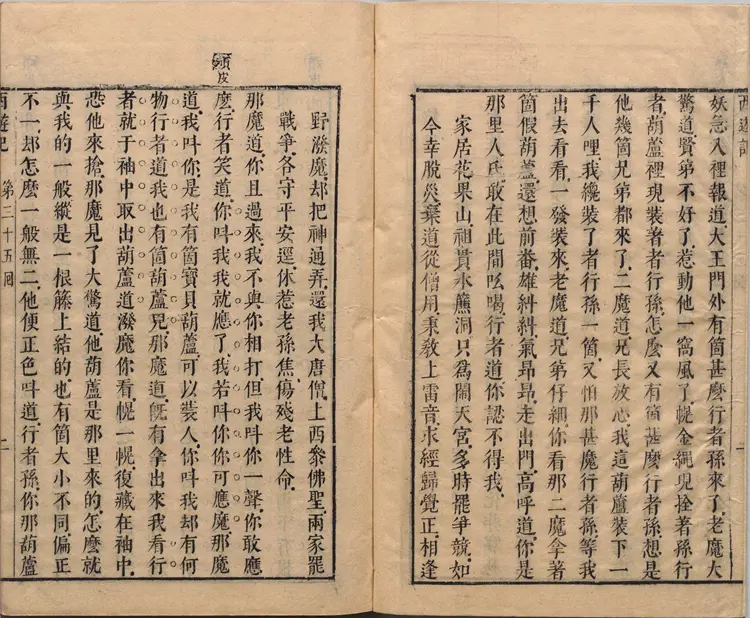 妖急入裡報道大王門外有箇甚麼行者孫來了老魔大
驚道賢弟不好了惹動他一窩風了幌金繩現拴著孫行
者葫蘆裡現裝著者行孫怎麼又有箇甚麼行者孫想是
他幾箇兄弟都來了二魔道兄長放心我這葫蘆裝下一
千人哩我纔裝了者行孫一箇又怕那甚麼行者孫等我
出去看看一發裝來老魔道兄弟仔細你看那二魔拿著
箇假葫蘆還想前番雄糾糾氣昂昂走出門高呼道你是
那里人氏敢在此間吆喝行者道你認不得我
家居花果山祖貫水簾洞只為鬧天宮多時罷爭競如
今幸脫災棄道從僧用秉教上雷音求經歸覺正相逢
野潑魔却把神通弄還我大唐僧上西參佛聖兩家罷
戰爭各守平安逕休惹老孫焦傷殘老性命
那魔道你且過來我不與你相打但我呌你一聲你敢應
麼行者笑道你呌我我就應了我若呌你你可應麼那魔
道我呌你是我有箇寶貝葫蘆可以裝人你呌我却有何
物行者道我也有箇葫蘆兒那魔道既有拿出來我看行
者就于袖中取出葫蘆道潑魔你看幌一幌復藏在袖中
恐他來搶那魔見了大驚道他葫蘆是那里來的怎麼就
與我的一般縱是一根籐上結的也有箇大小不同偏正
不一却怎麼一般無二他便正色呌道行者孫你那葫蘆
西遊記 第三十五回 二